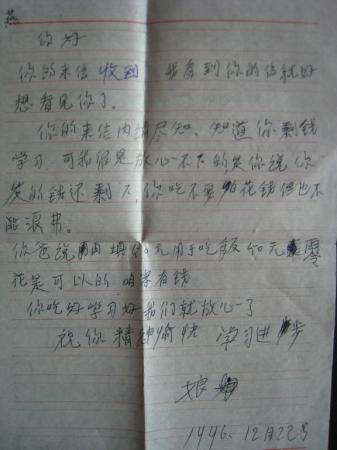 燕
你好
你的来信收到 我看到你的信就好
想看见你了。
你的来信内情尽知、知道你剩钱
学习,可我很是放心不下的是你说你
发的钱还剩下,你吃不要怕花钱但也不
能浪费。
你爸说 元用于吃饭 50元 零
花是可以的 咱家有钱
你吃好学习好我们就放心了
祝你精神愉快 学习进步
娘
1996、12月22号